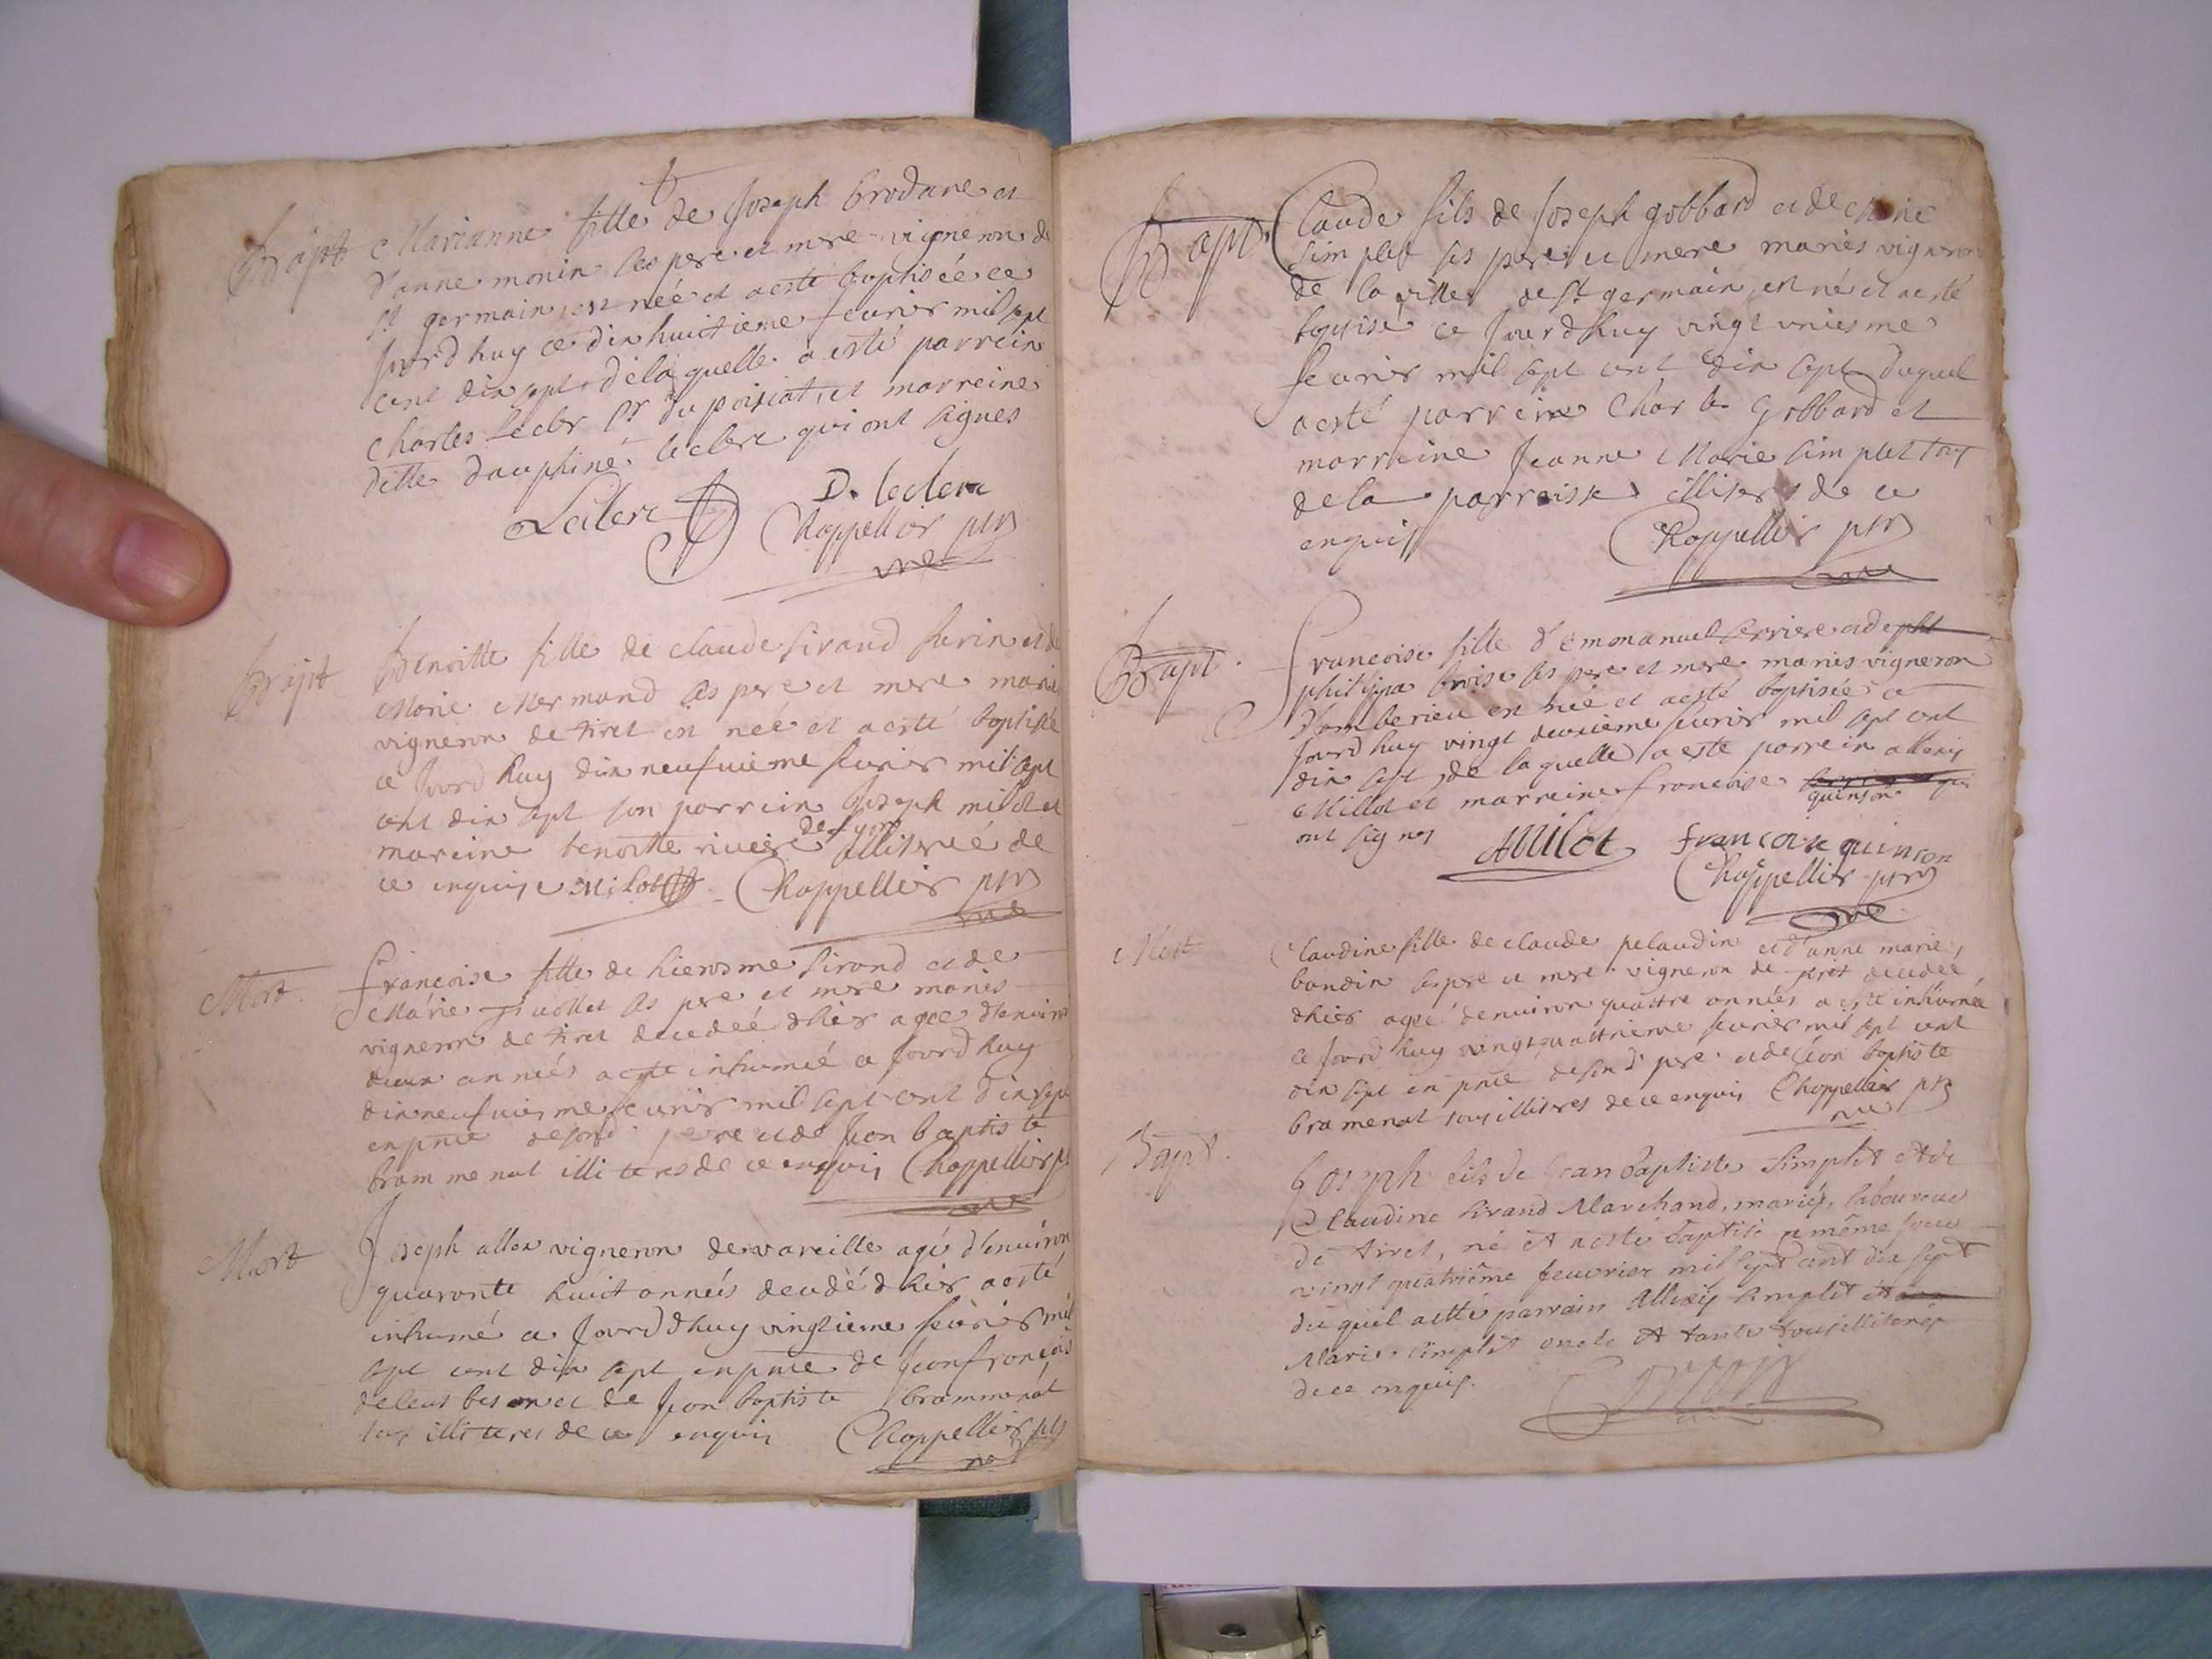 Bapt
Marianne fille de Joseph brodane et
d'anne monin ses pere et mere vigneron de
st germain, est née et a esté baptisée ce
jourd huy ce dix huitieme feurier mil sept
cent dix sept, de laquelle a esté parrein
Charles Lecler sr du poisiat, et marreine
delle dauphiné leclerc qui ont signes
Leclerc D. leclerc
Chappellier ptre
vre
Bapt
Benoitte fille de claude sirand surin et de
Marie Mermand ses pere et mere mariés
vigneron de tiret est neé et a esté baptisée
ce jourd huy dix neufuieme feurier mil sept
cent dix sept son parrein Joseph milot et
mareine benoitte riviere illiteré de
ce enquis Milot Chappellier ptre
vre
Mort
françoise fille de hierosme sirand et de
Marie ses pere et mere mariés
vigneron de tiret decedeé d'hier agée d'enuiron
deux années a esté inhumeé ce jourd huy
dix neufuiesme feurier mil sept cent dix sept
en pnce de son d. pere et de Jean baptiste
bram menat illiteres de ce enquis Chappellier ptre
vre
Mort
Joseph allex vigneron de vareille agé d'enuiron
quaronte huict années decedé d'hier a esté
inhumé ce jourd'huy vingtieme feurier mil
sept cent dix sept en pnce de Jean françois
et de Jean baptiste brammenat
tous illiteres de ce enquis Chappellier ptre
vre
Bapt.
Claude fils de Joseph gobbard et de
simplet ses pere et mere mariés vigneron
de la ville de st germain, est né et a esté
baptisé ce jourd huy vingt uniesme
feurier mil sept cent dix sept duquel
a esté parreine Charle Gobbard et
marreine Jeanne Marie simplet tous
de la parroisse illiteres de ce
enquis Chappellier ptre
vre
Bapt.
Francoise fille d'emonanuel ferriere et de
philippa broise ses pere et mere mariés vigneron
d'amberieu est née et a esté baptisée ce
jourd huy vingt deuxieme feurier mil sept cent
dix sept, de laquelle a esté parrein allexis
Millot et marreine francoise
quinson qui
ont signes AMilot francoise quinson
Chappellier ptre
vre
Mort
Claudine fille de claude pelaudin et d'anne marie
baudin ses pere et mere vigneron de tiret decedeé
d'hier ageé d'enuiron quattre années a esté inhumée
ce jourd huy vingt quattrieme feurier mil sept cent
dix sept en pnce de son d. pere et de jean baptiste
bramenat tous illiteres de ce enquis Chappellier ptre
vre
Bapt.
Joseph fils de Jean Baptiste Simplet et de
Claudine Sirand Marchand, mariés, laboureur
de tiret, né et a esté baptisé ce même jour
vingt quatriême feuvrier mil sept cent dix sept
du quel a etté parrain Allexis simplet et
Marie simplet oncle et tante tous illiterés
de ce enquis.